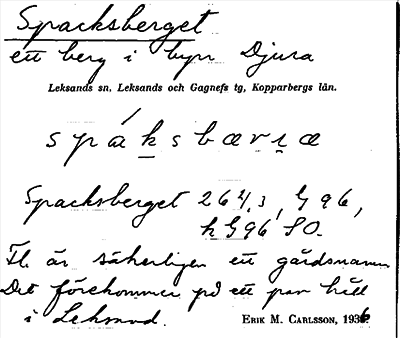 Spacksberget
ett berg i byn Djura
Leksands sn, Leksands och Gagnefs tg, Kopparbergs län.
spáksbærıæ
Spacksberget 26 4/3, G 96,
k G 96 SO.
Fl. är säkerligen ett gårdsnamn
Det förekommer på ett par håll
i Leksand.
ERIK M. CARLSSON, 1936